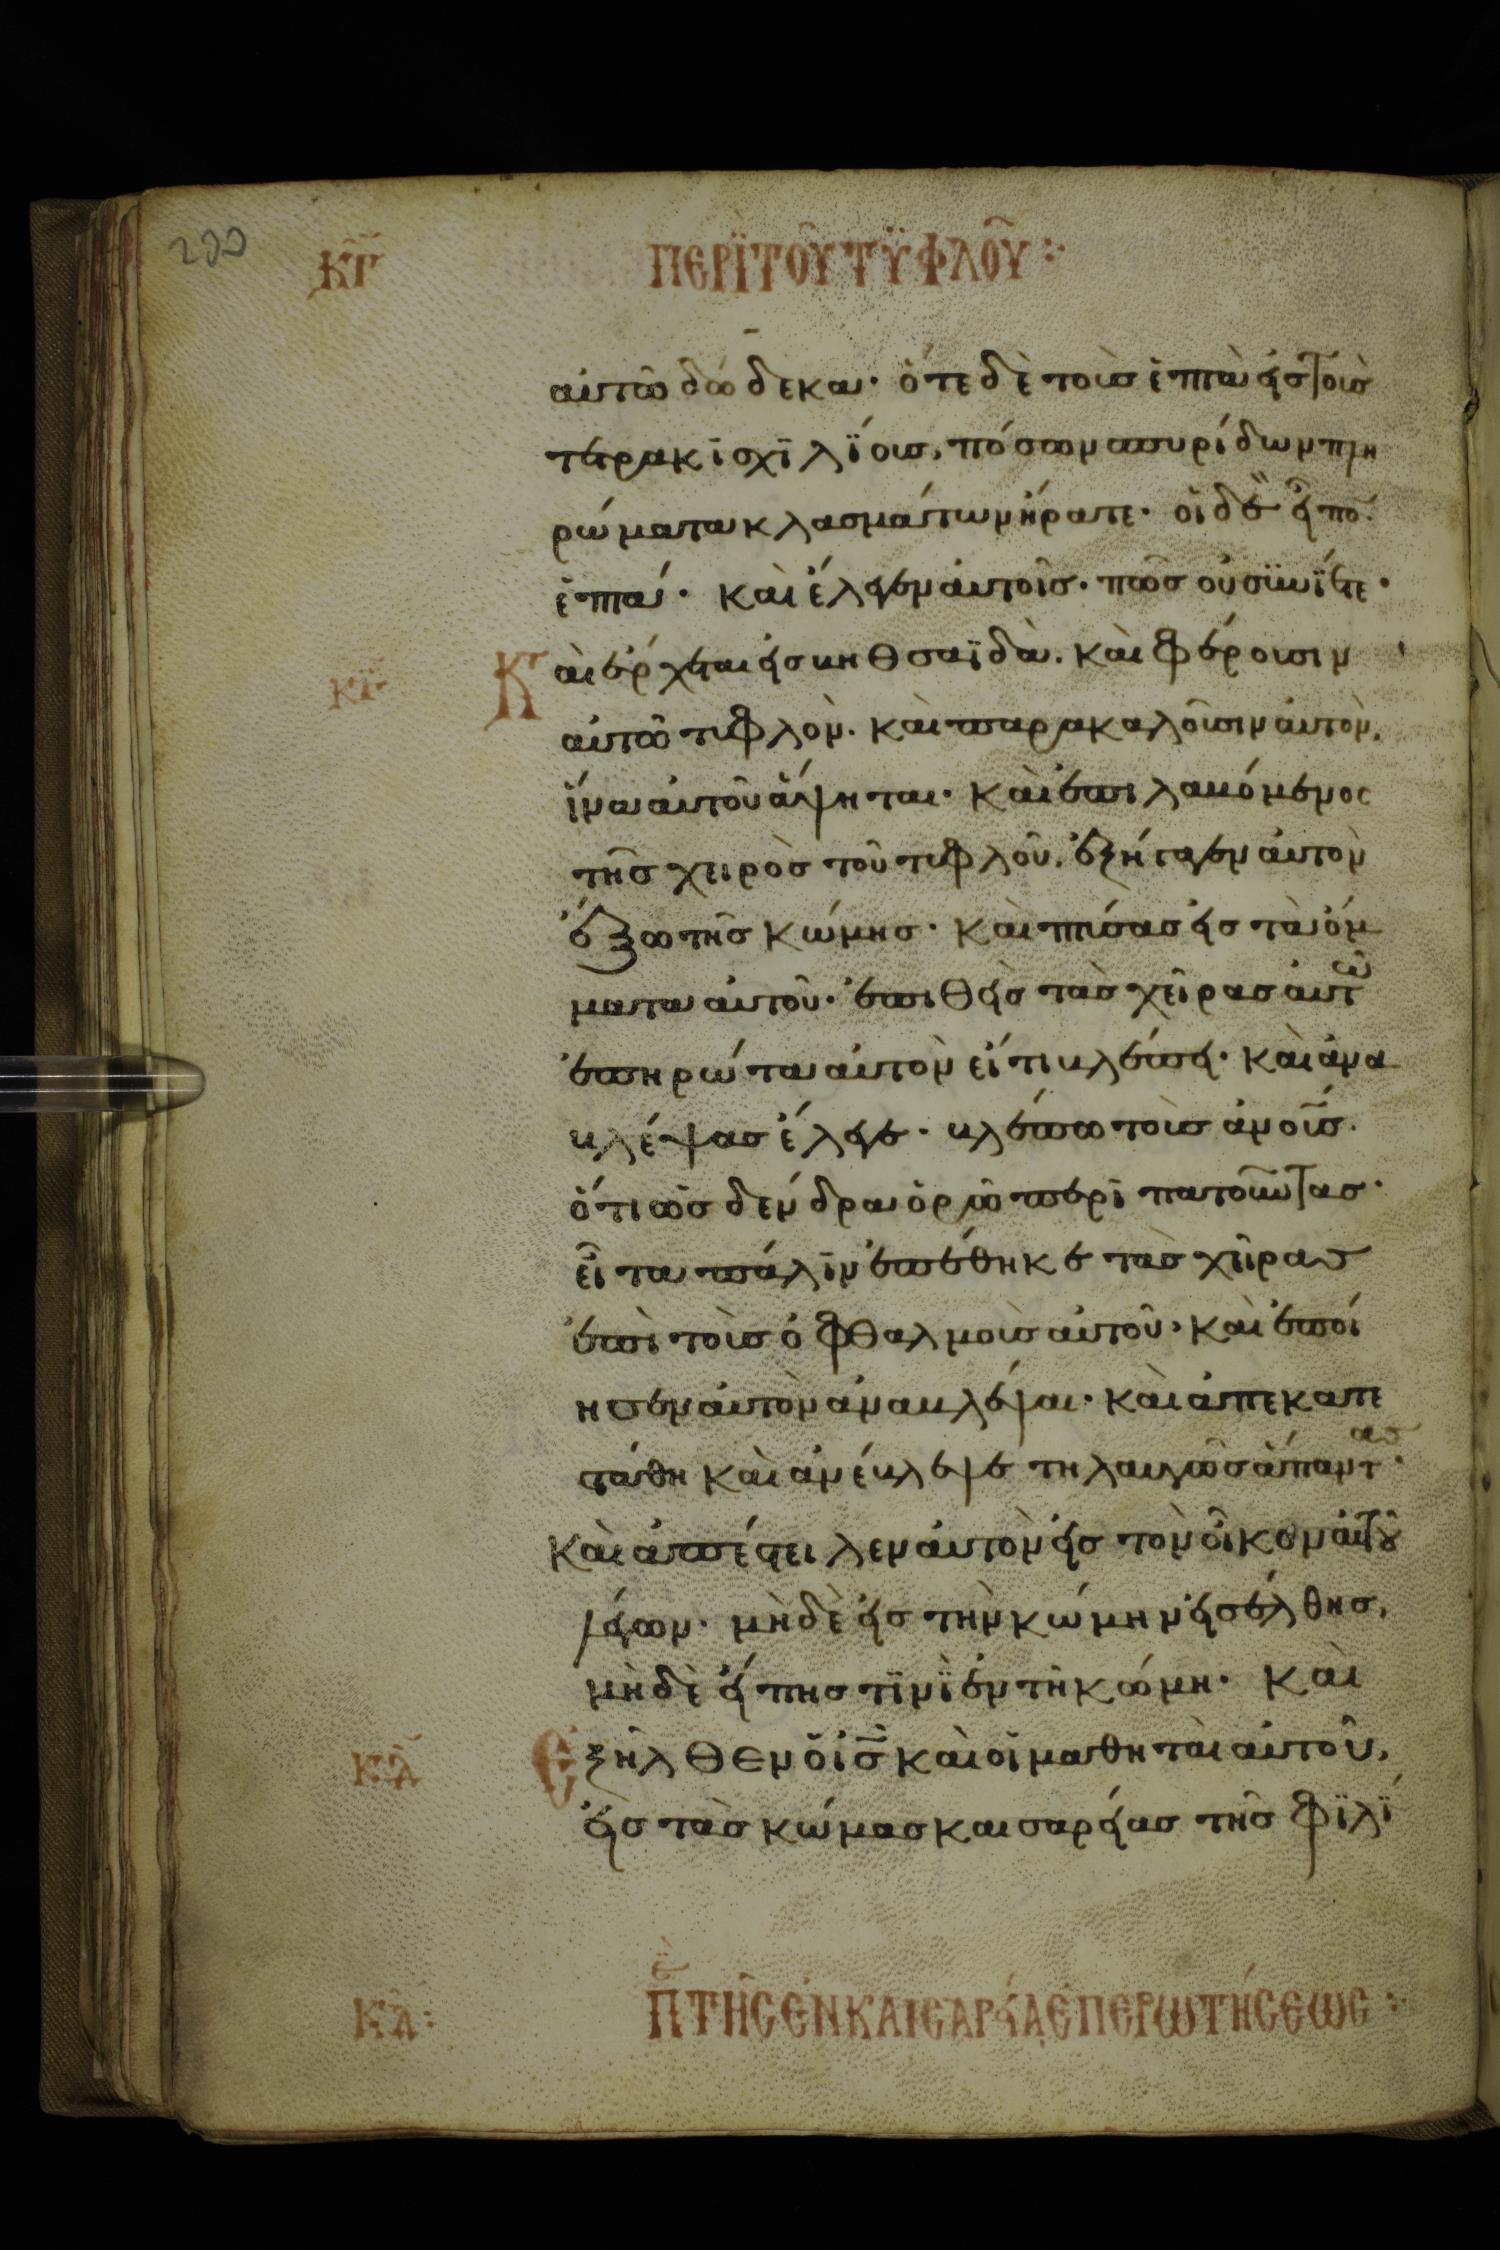 200
κγ ΠΕΡῒ ΤΟῦ ΤΫΦΛΟῦ:
αὐτῶ δώδεκα· ὅτε δὲ τοὺσ ἑπτὰ εἰσ τοὺσ
τετρακισχιλΐουσ, πόσων σπυρίδων πλη
ρώματα κλασμάτων ἤρατε· οἱ δὲ εἶπο̅·
ἑπτά· καὶ ἔλεγεν αὐτοῖσ· πῶσ οὐ συνΐετε·
κγ Καὶ ἔρχεται εἰσ βηθσαϊδὰ. καὶ φέρουσιν
αὐτῶ τυφλὸν. καὶ παρακαλοῦσιν αὐτὸν,
ἵνα αὐτοῦ ἅψηται· καὶ ἐπιλαβόμενος
τῆσ χειρὸσ τοῦ τυφλοῦ, ἐξήγαγεν αὐτὸν
ἔξω τῆσ κώμησ· καὶ πτύσασ εἰσ τὰ ὄμ
ματα αὐτοῦ· ἐπιθεὶσ τὰσ χεῖρασ αὐτῶ
ἐπηρώτα αὐτὸν εἴ τι βλέπει· καὶ ἀνα
βλέψασ ἔλεγε· βλέπω τοὺσ ἀνο̅υ̅σ·
ὅτι ὡσ δένδρα ὁρῶ περιπατοῦντασ·
εἶτα πάλιν ἐπέθηκε τὰσ χεῖρασ
ἐπὶ τοὺσ ὀφθαλμοὺσ αὐτοῦ· καὶ ἐποί
ησεν αὐτὸν ἀναβλέψαι· καὶ ἀπεκατε
στάθη καὶ ἀνέβλεψε τηλαυγῶσ ἅπαντασ·
καὶ ἀπέστειλεν αὐτὸν εἰσ τὸν οἶκον αὐτοῦ
λέγων· μὴ δὲ εἰσ τὴν κώμην εἰσέλθησ,
μὴ δὲ εἴπησ τϊνῒ ἐν τῆ κώμη· Καὶ
κδ Ἐξῆλθεν ὁ ι̅σ̅ καὶ οἱ μαθηταὶ αὐτοῦ,
εἰσ τὰσ κώμασ καισαρείασ τῆσ φϊλΐ
κδ: Π̅ ΤῆΣ ἐΝ ΚΑΙΣΑΡΕίΑ ἐΠΕΡΩΤήΣΕΩΣ: